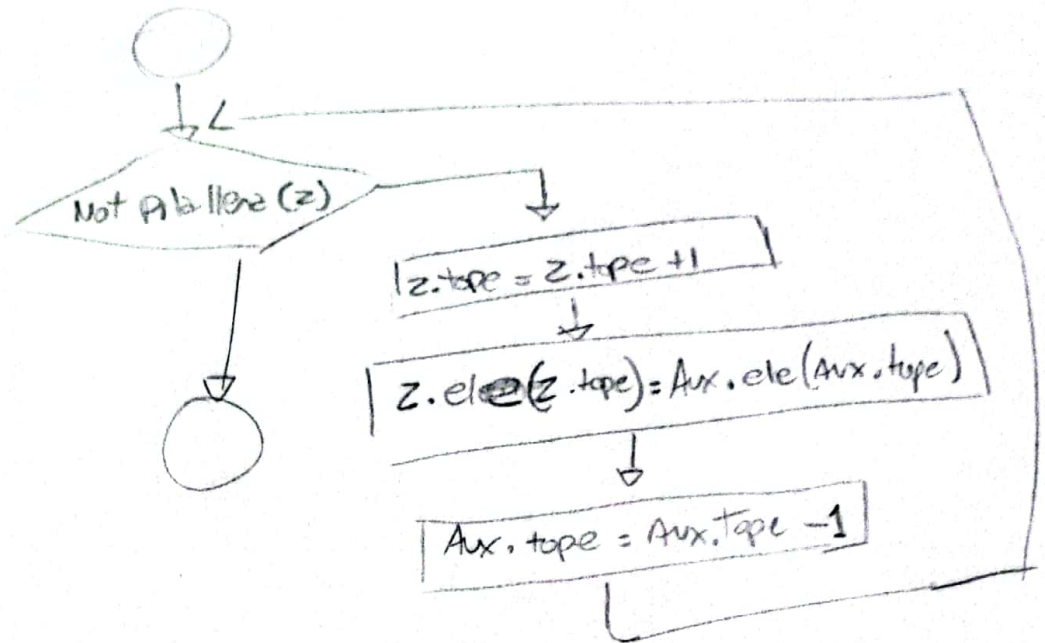 Not Pila llena (z)
z.tope = z.tope +1
z.ele(z.tope) = Aux.ele(Aux.tope)
Aux.tope = Aux.Tope -1